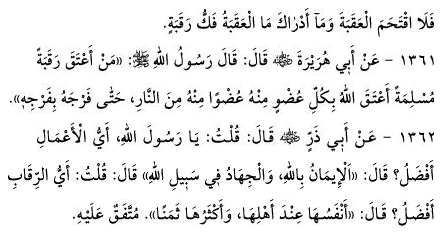 فَلَا اقْتَحَمَ الْعَقَبَةَ وَمَآ أَدْرَاكَ مَا الْعَقَبَةُ فَكُّ رَقَبَةٍ.
١٣٦١ - عَنْ أَبِي هُرَيْرَةَ ﵁ قَالَ: قَالَ رَسُولُ اللهِ ﷺ: «مَنْ أَعْتَقَ رَقَبَةً
مُسْلِمَةً أَعْتَقَ اللهُ بِكُلِّ عُضْوٍ مِنْهُ عُضْوًا مِنْهُ مِنَ النَّارِ، حَتَّى فَرْجَهُ بِفَرْجِهِ».
١٣٦٢ - عَنْ أَبِي ذَرٍّ ﵁ قَالَ: قُلْتُ: يَا رَسُولَ اللهِ، أَيُّ الْأَعْمَالِ
أَفْضَلُ؟ قَالَ: «اَلْإِيمَانُ بِاللهِ، وَالْجِهَادُ فِي سَبِيلِ اللهِ» قَالَ: قُلْتُ: أَيُّ الرِّقَابِ
أَفْضَلُ؟ قَالَ: «أَنْفَسُهَا عِنْدَ أَهْلِهَا، وَأَكْثَرُهَا ثَمَنًا». مُتَّفَقٌ عَلَيْهِ.